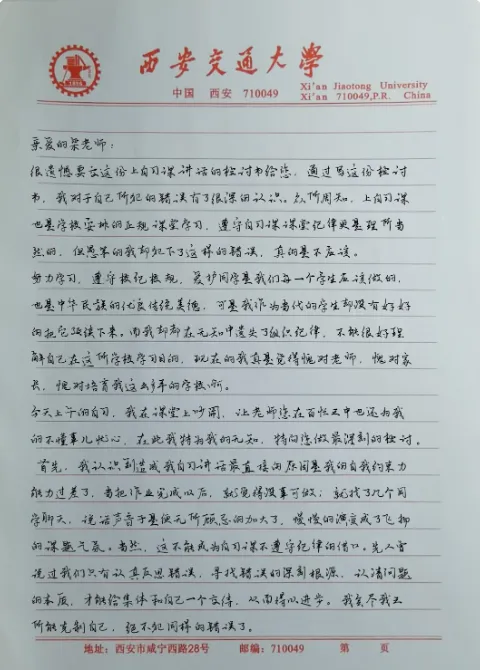 西安交通大学
中国 西安 710049
Xi'an Jiaotong University
Xi'an 710049,P.R. China
亲爱的梁老师：
很遗憾要交这份上自习课讲话的检讨书给您，通过写这份检讨
书，我对于自己所犯的错误有了很深的认识。众所周知，上自习课
也是学校安排的正规课堂学习，遵守自习课课堂纪律更是理所当
然的，但愚笨的我却犯下了这样的错误，真的是不应该。
努力学习，遵守校纪校规，爱护同学是我们每一个学生应该做的，
也是中华民族的优良传统美德，可是我作为当代的学生却没有好好
的把它延读下来。而我却都在无知中遗失了组织纪律，不能很好理
解自己在这所学校学习目的，现在的我真是觉得愧对老师，愧对家
长，愧对培育我这么多年的学校所。
今天上午的自习，我在课堂上吵闹，让老师您在百忙之中也还为我
的不懂事儿忧心，在此我特为我的无知，特向您做最深刻的检讨。
首先，我认识到造成我自习讲话最直接的原因是我的自我约束力
能力过差了，当把作业完成以后，就觉得没事可做，就找了几个同
学聊天，说话声音于是便无所顾忌的加大了，慢慢的演变成了飞抑
的课题气氛。当然，这不能成为自习课不遵守纪律的借口。先人曾
说过我们只有认真反思错误，寻找错误的深刻根源，认清问题
的本质，才能给集体和自己一个交待，从而得以进步。我会尽我之
所能克制自己，绝不犯同样的错误了。
地址：西安市咸宁西路28号 邮编：710049 第 页